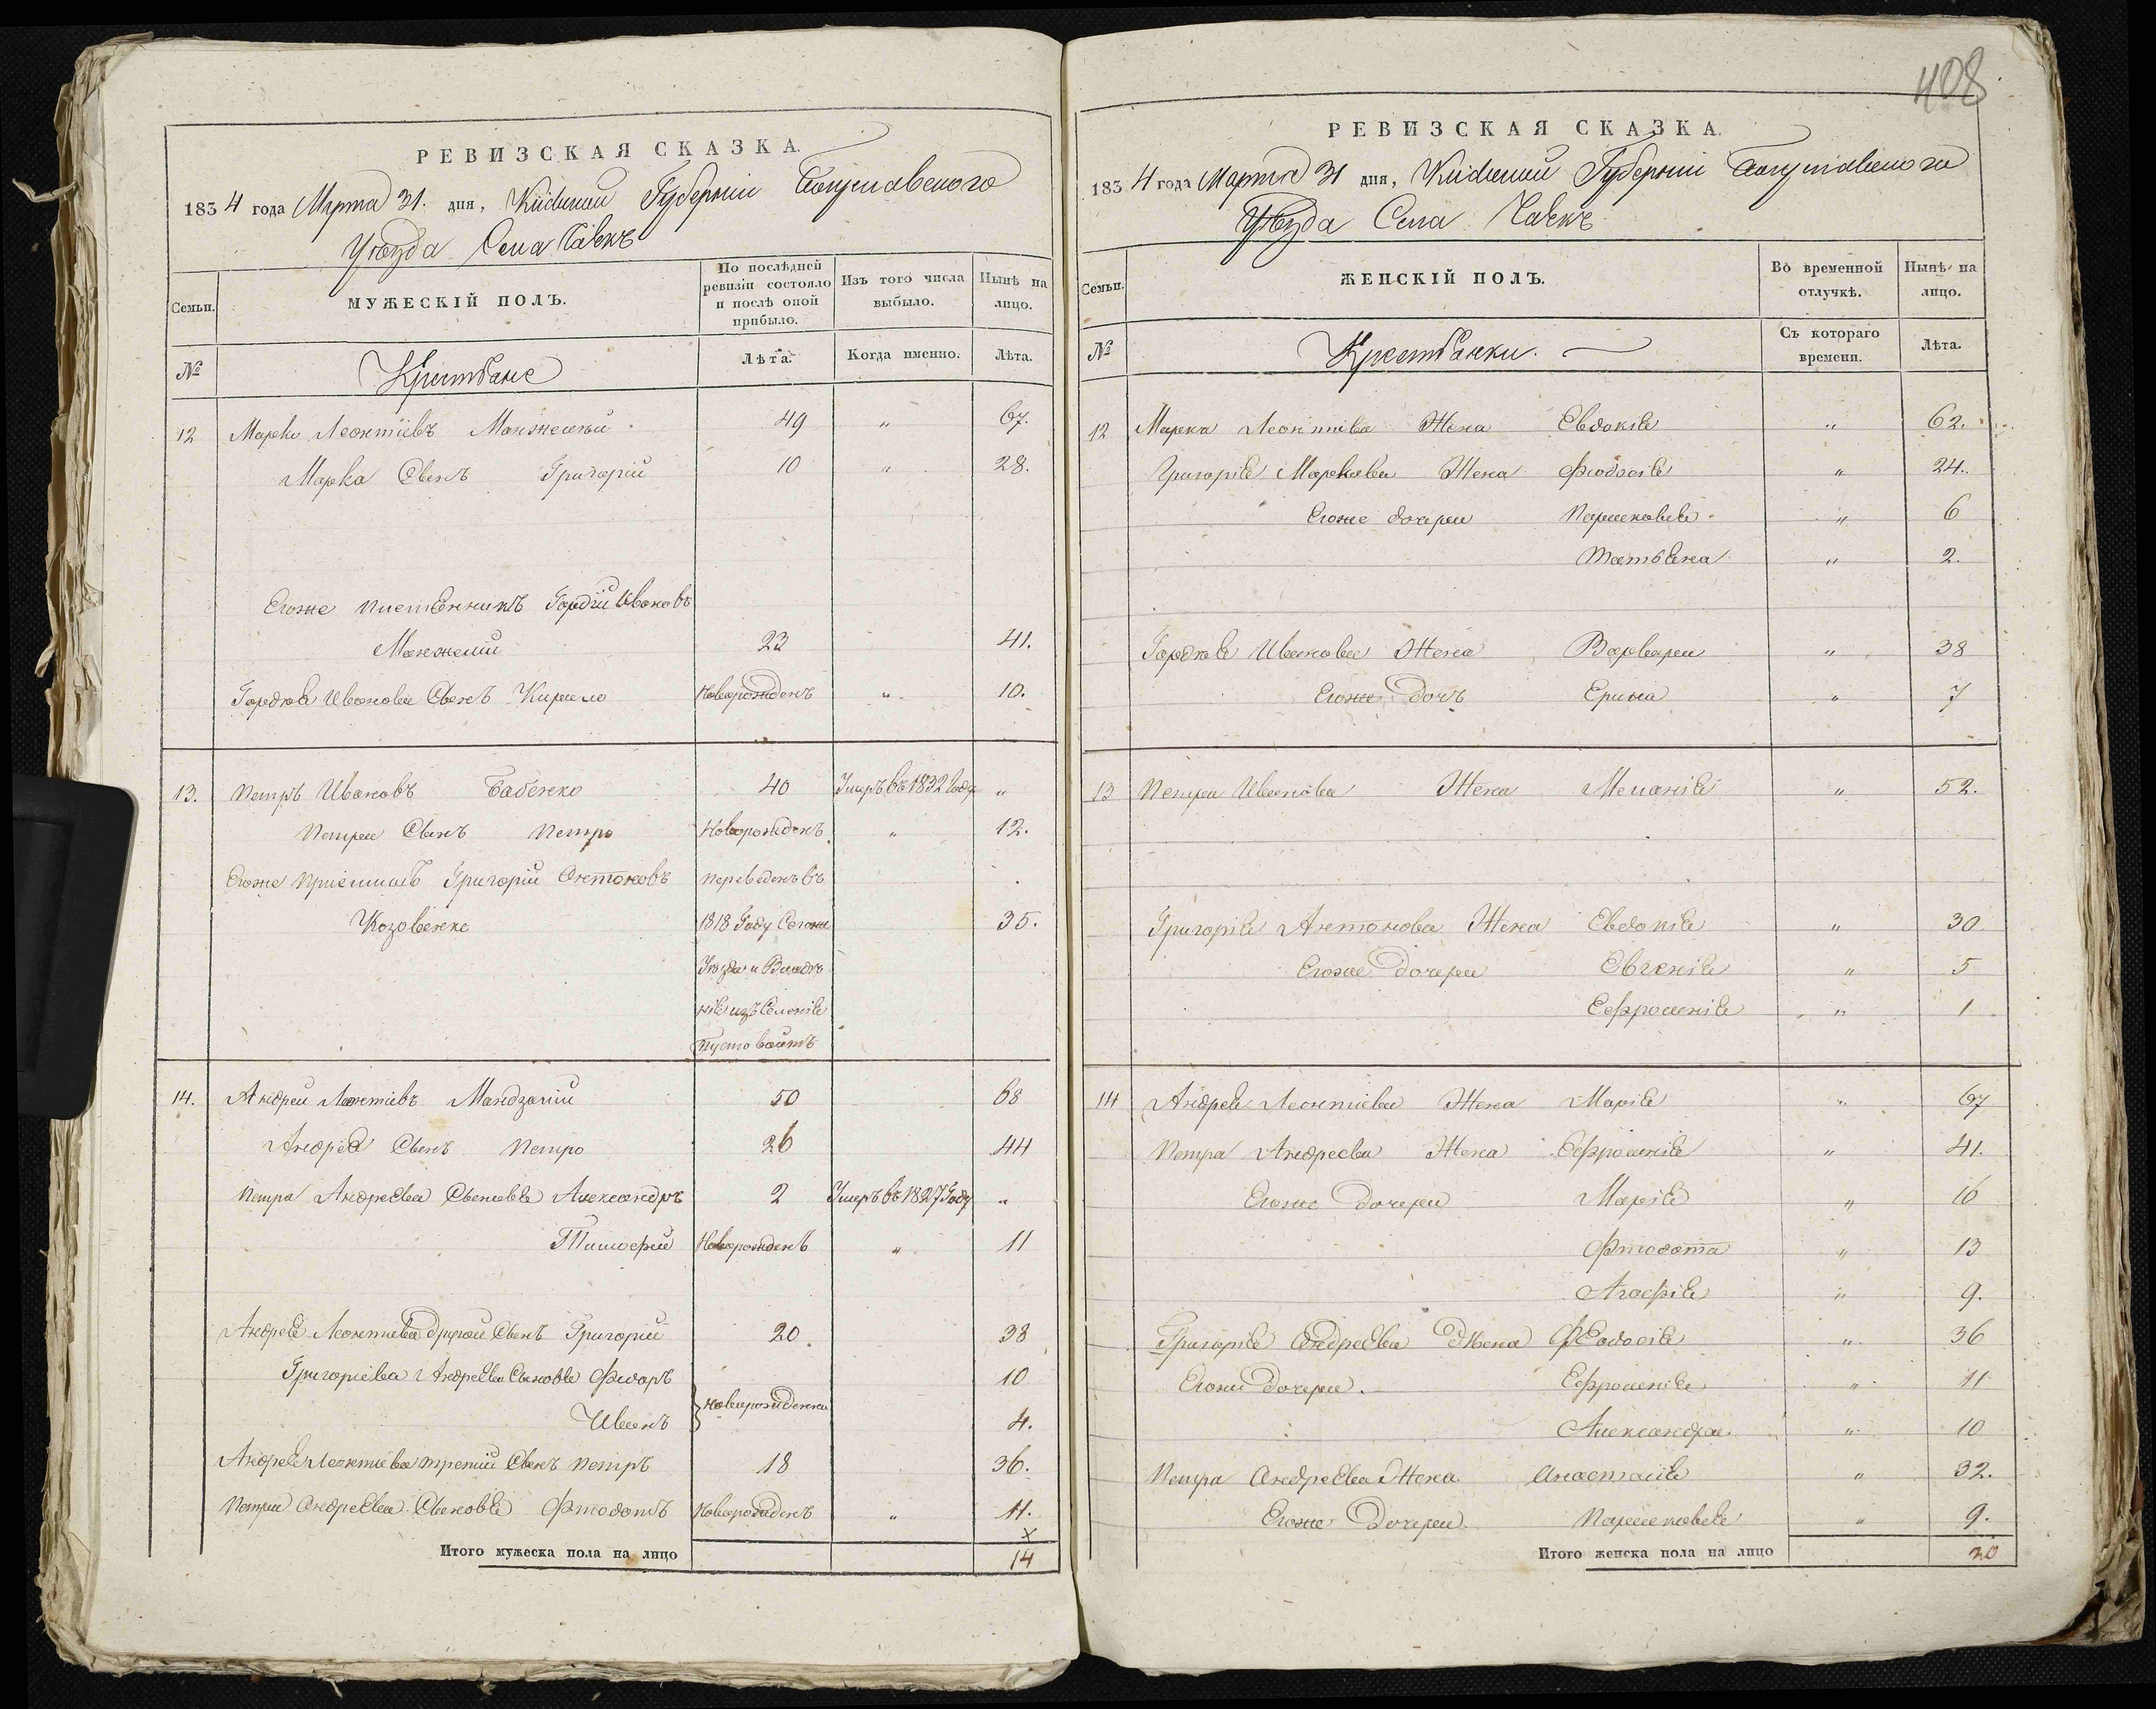 408
РЕВИЗСКАЯ СКАЗКА.
1834 года Марта 31. дня, Кіевской Губерніи Богуславского
Уѣзда Села
Семьи.
МУЖЕСКІЙ ПОЛЪ.
По послѣдней ревизіи состояло и послѣ оной прибыло.
Изъ того числа выбыло.
Нынѣ на лицо.
№
Крестьяне
Лѣта.
Когда именно.
Лѣта.
12 Марко Леонтіевъ 49 " 67.
Марка Сынъ Григорій 10 " 28.
Егоже племянникъ Гордій Ивановъ
23 41.
Гордѣя Иванова Сынъ Кирило Новорожденъ " 10.
13. Петръ Ивановъ Бабенко 40 Умеръ въ 1832 Году "
Петра Сынъ Петро Новорожденъ " 12.
Егоже пріемышъ Григорій Антоновъ переведенъ въ
1818 Году 35.
Уѣзда и Владѣ
нія изъ Селенія
14. Андрей Леонтіевъ 50 68
Андрея Сынъ Петро 26 44
Петра Андреева Сыновья Александръ 2 Умеръ въ 1827 Году "
Тимофей Новорожденъ " 11
Андрея Леонтіева другой Сынъ Григорій 20. 38
Григорія Андреева Сыновья Федоръ 10
Иванъ } новорожденны 4.
Андрея Леонтіева третій Сынъ Петръ 18 36.
Петра Андреева Сыновья Новорожденъ " 11.
×
Итого мужеска пола на лицо 14
РЕВИЗСКАЯ СКАЗКА.
1834 года Марта 31 дня, Кіевской Губерніи Богуславского
Уѣзда Села
Семьи.
ЖЕНСКІЙ ПОЛЪ.
Во временной отлучкѣ.
Нынѣ на лицо.
№
Крестьянки.
Съ котораго времени.
Лѣта.
12 Марка Леонтіева Жена Евдокія " 62.
Григорія Маркова Жена Феодосія " 24.
Егоже дочери Парасковья " 6
Татьяна " 2.
Гордѣя Иванова Жена Варвара " 38
Егоже Дочь Ерина " 7
13 Петра Иванова Жена Меланія " 52.
Григорія Антонова Жена Евдокія " 30
Егоже Дочери Евгенія " 5
Ефросинія " 1
14 Андрея Леонтіева Жена Марія " 67
Петра Андреева Жена Ефросинія " 41.
Егоже Дочери Марія " 16
" 13
Агафія " 9.
Григорія Андреева Жена Феодосія " 36
Егоже Дочери. Ефросинія " 11
Александра " 10
Петра Андреева Жена Анастасія " 32.
Егоже Дочери Парасковья " 9.
Итого женска пола на лицо 20